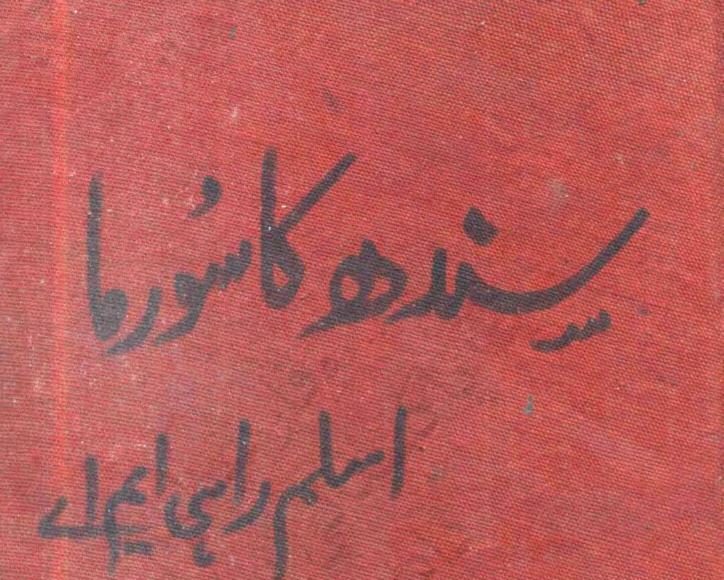 سندھ کا سُورما
اسلم راہی ایم اے